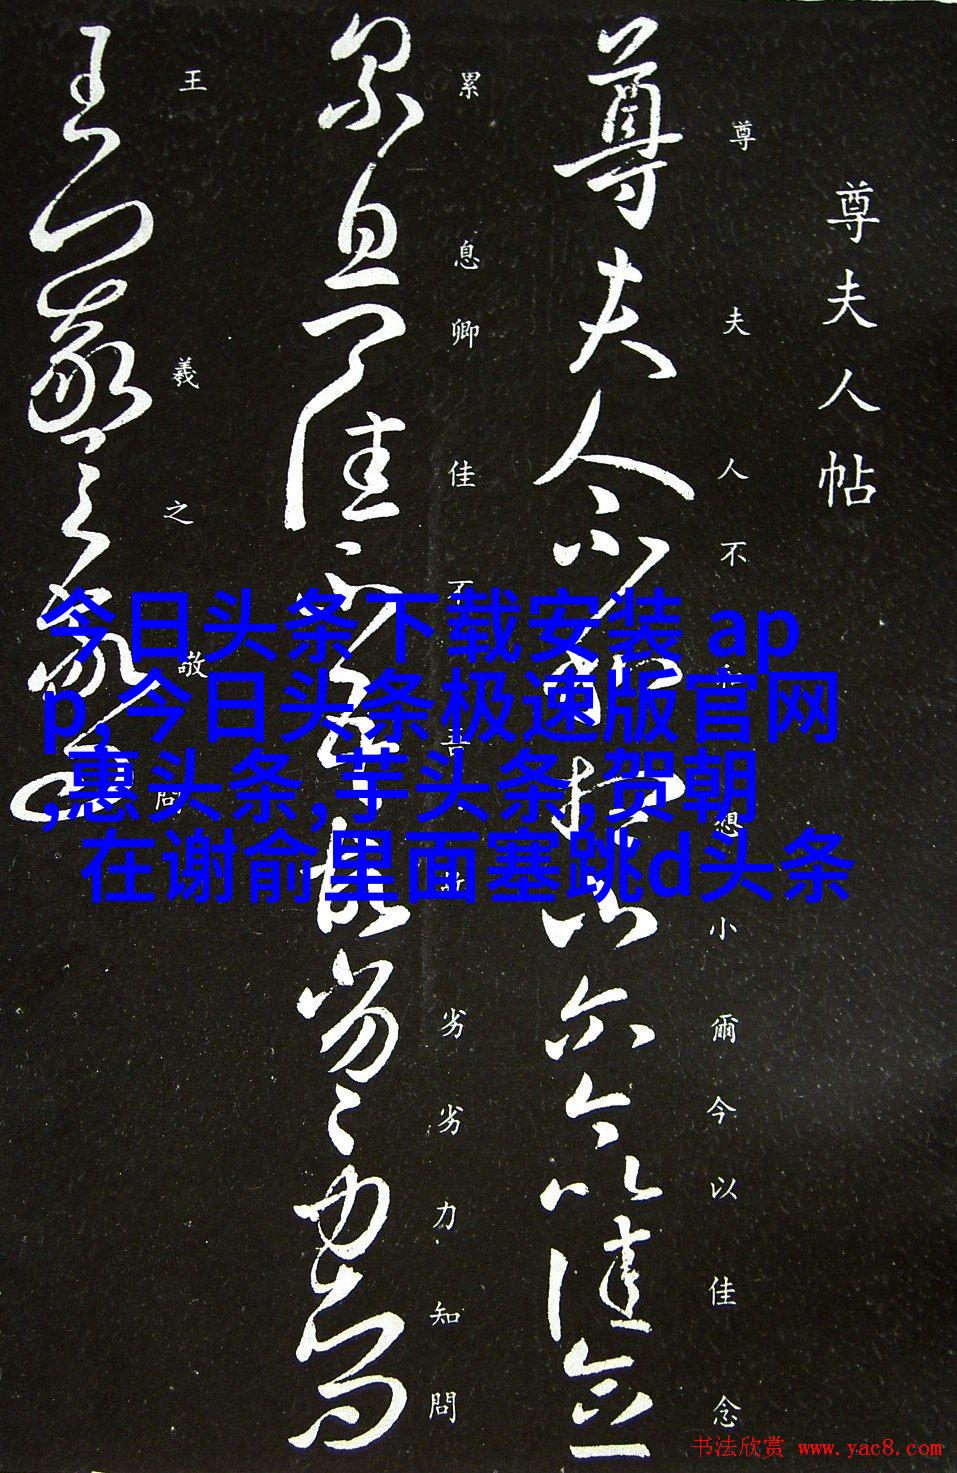 尊夫人帖
尊夫人不和想小爾今以佳念
累息卿佳不吾故劣劣力知問
王羲之敬問
今日头条下载安装 ap
p,今日头条极速版官网
,惠头条,芋头条,贺朝
在谢俞里面塞跳d头条
书法欣赏 www.yac8.com